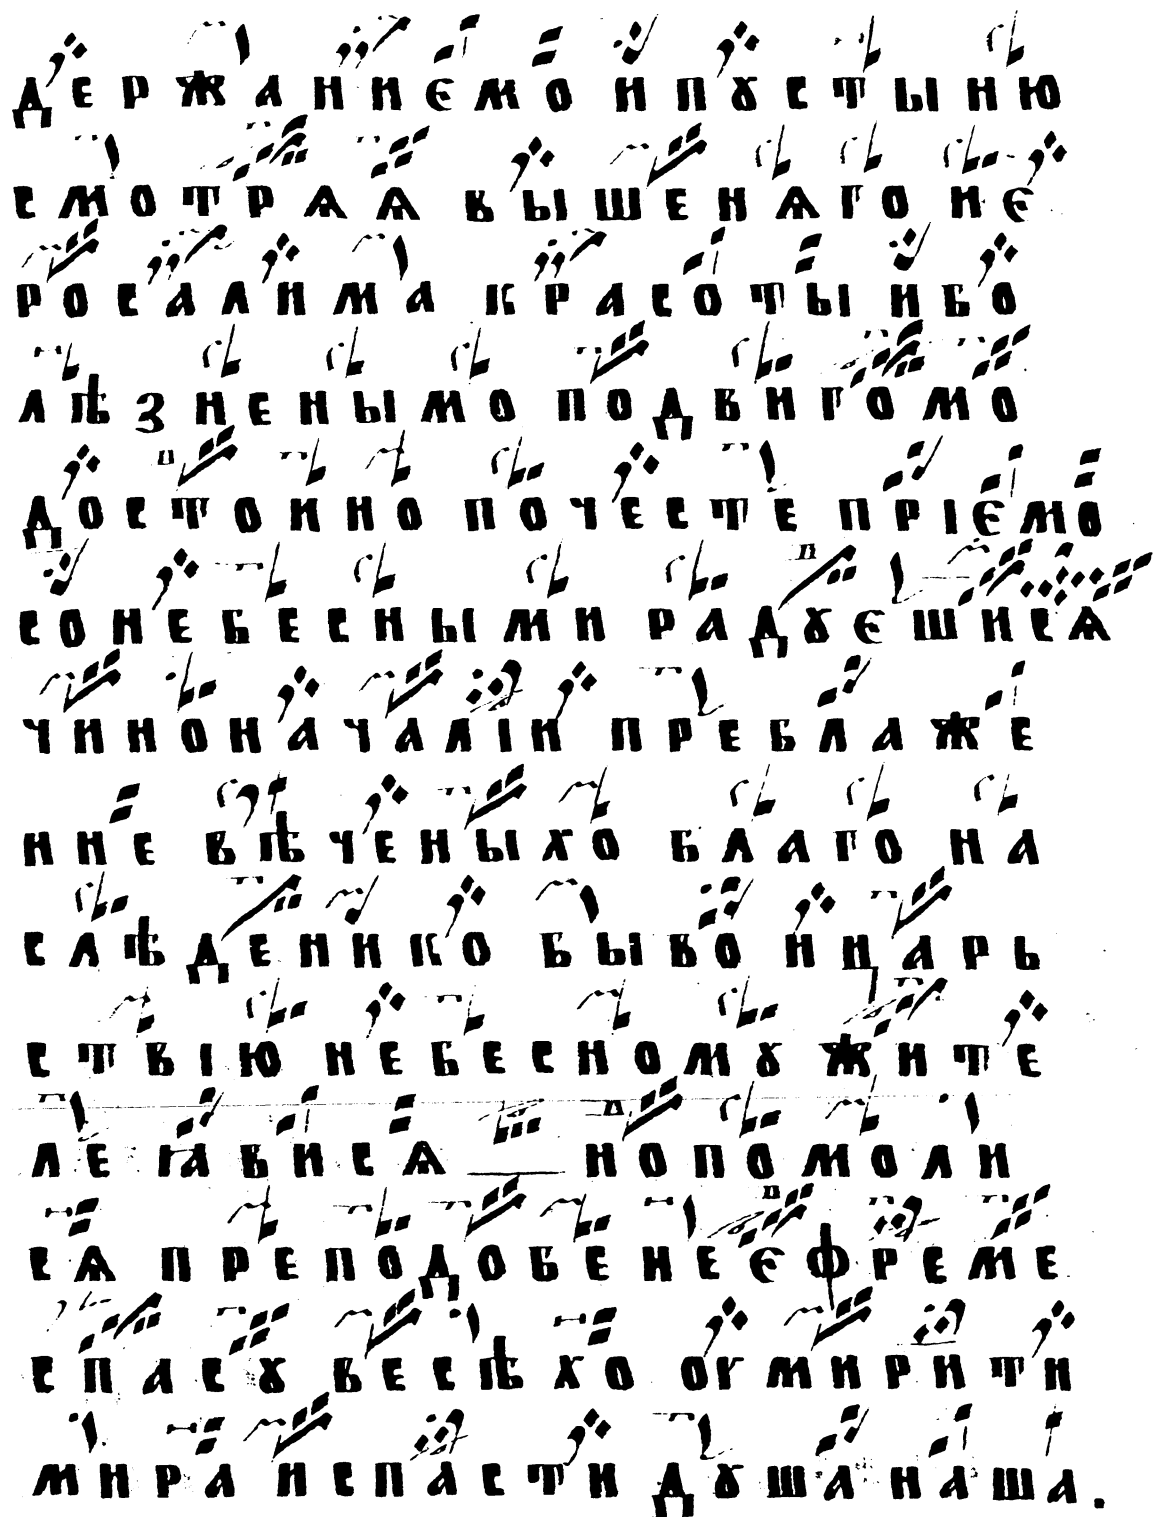 держаниємо и пꙋстыню
смотраѧ вышенѧго иє
росалима красоты и бо
лѣзненымо подвигомо
достоино почесте прїємо
со небесными радꙋєшисѧ
чиноначалїи преблаже
нне вѣченыхо благо на
слѣденико быво и царь
ствїю небесномꙋ жите
ле ꙗвисѧ но помоли
сѧ преподобене єфреме
спасꙋ весѣхо оумирити
мира и спасти дꙋша наша.